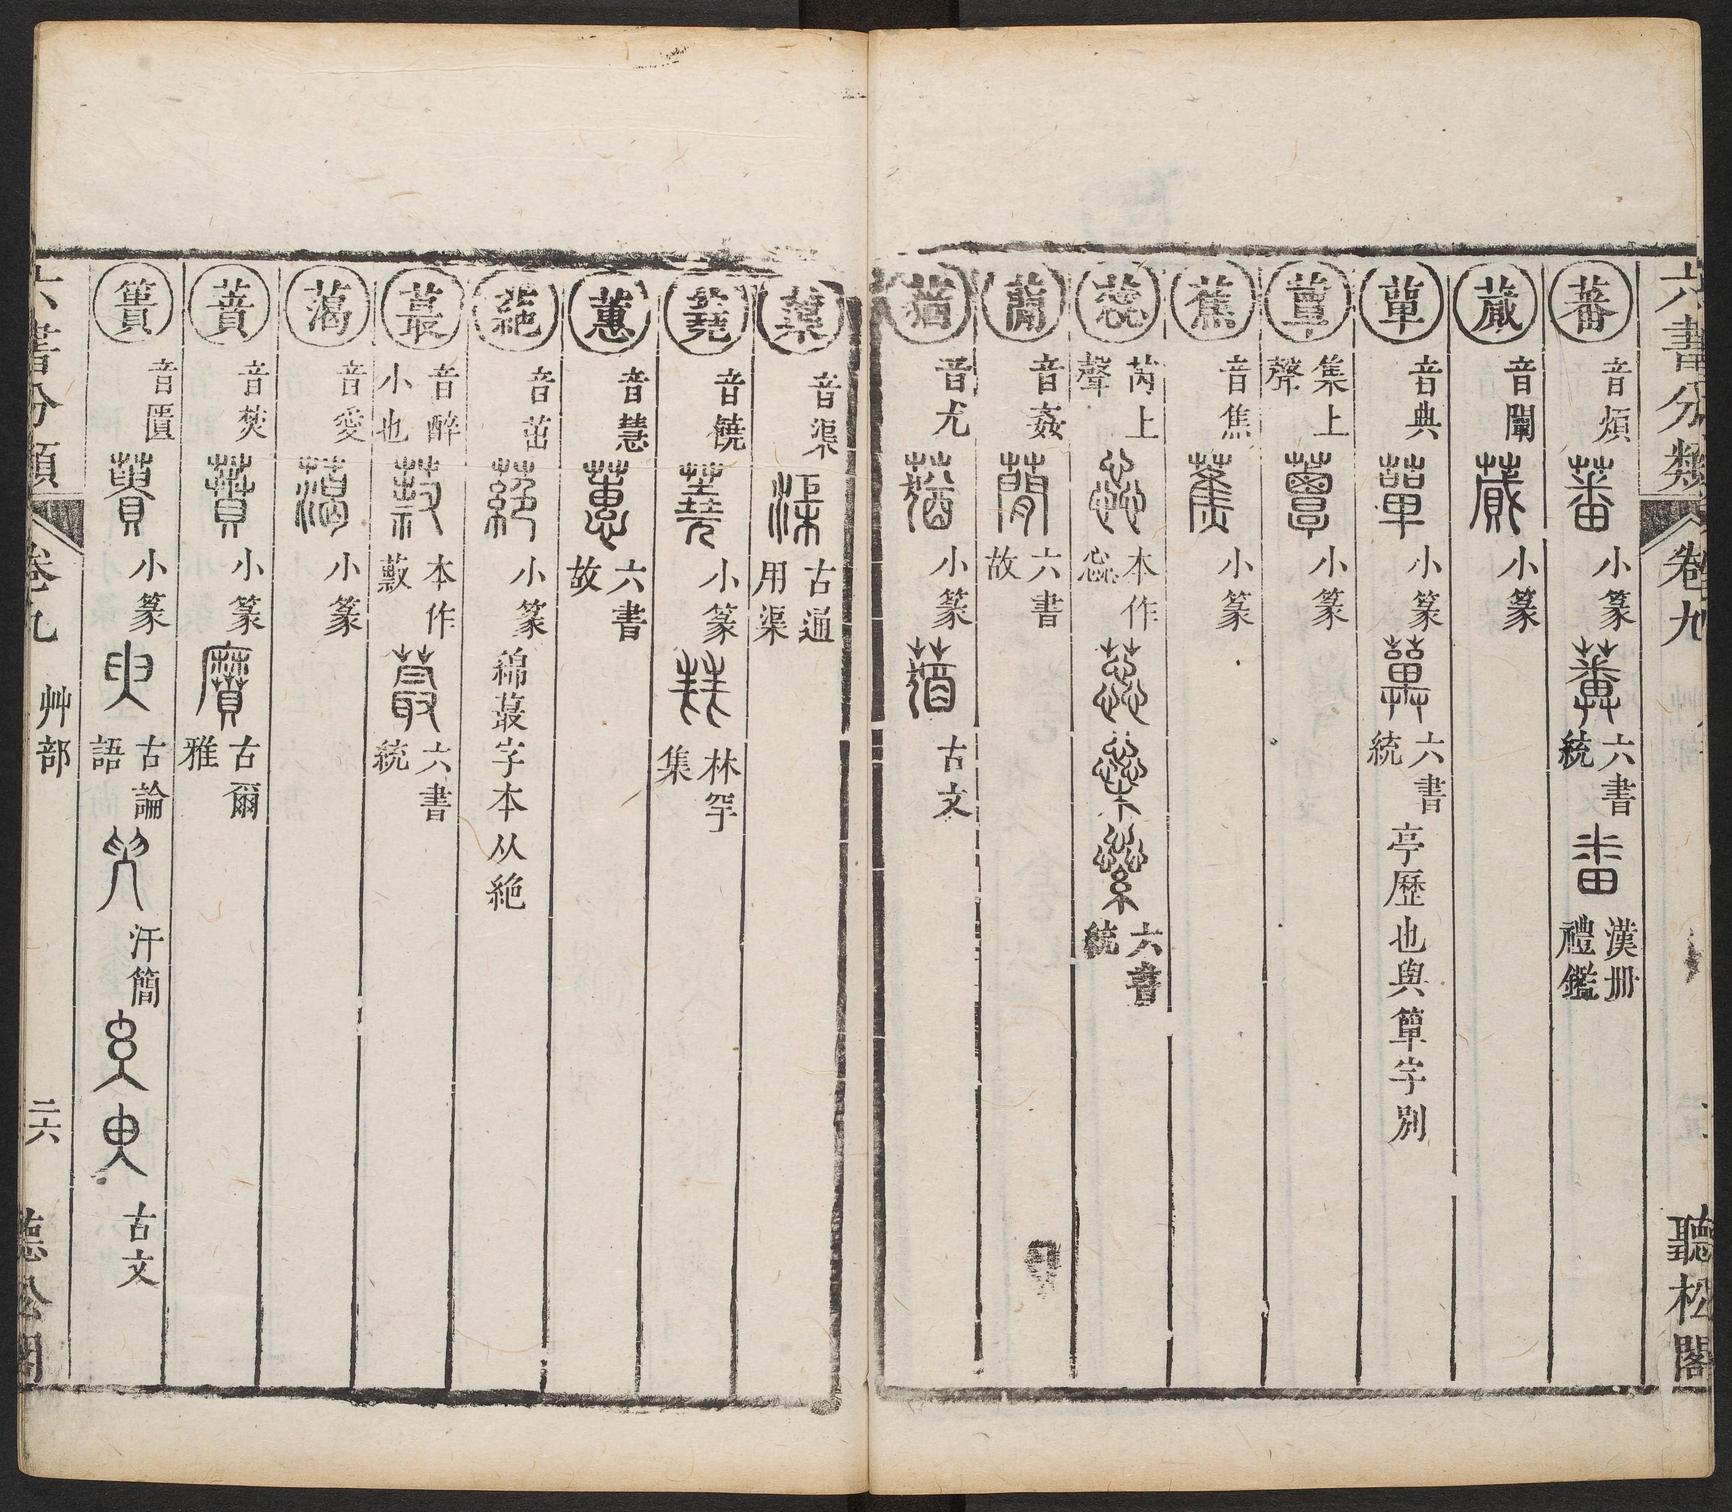 六書分類 卷九 聽松閣
蕃 音煩 小篆 六書統 漢冊禮鑑
蕆 音闡 小篆
蕇 音典 小篆 六書統 亭歷也與簞字別
蕈 集上聲 小篆
蕉 音焦 小篆
蕊 芮上聲 本作惢 六書統
蕑 音姦 六書故
蕕 音尤 小篆 古文
蕖 音渠 古通用渠
蕘 音饒 小篆 林罕集
蕙 音慧 六書故
蕝 音茁 小篆 綿蕞字本从絶
蕞 音醉小也 本作蔌 六書統
薃 音愛 小篆
蕡 音焚 小篆 古爾雅
蕢 音匱 小篆 古論語 汗簡 古文
六書分類 卷九 艸部 二六 聽松閣